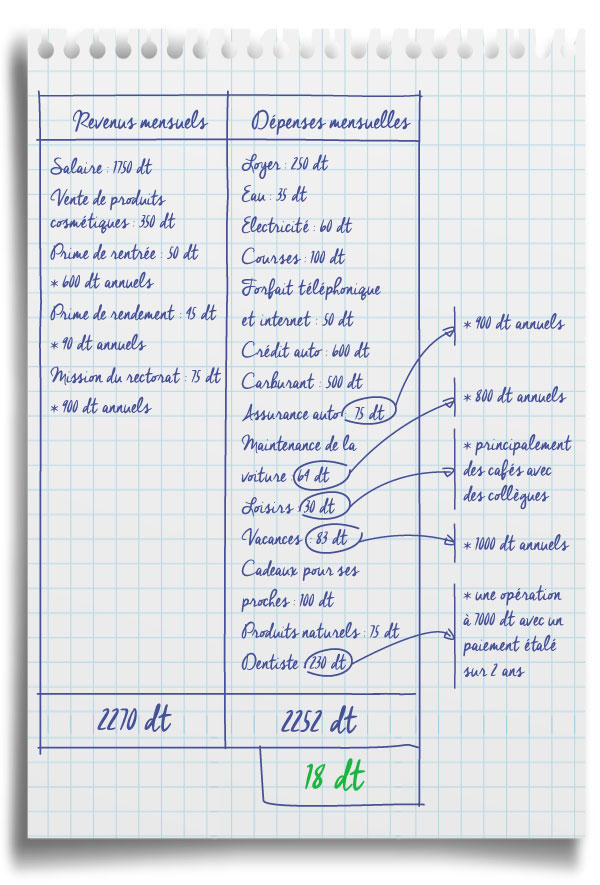 Revenus mensuels
Salaire : 1750 dt
Vente de produits
cosmétiques : 350 dt
Prime de rentrée : 50 dt
* 600 dt annuels
Prime de rendement : 45 dt
* 90 dt annuels
Mission du rectorat : 75 dt
* 900 dt annuels
2270 dt
Dépenses mensuelles
Loyer : 250 dt
Eau : 35 dt
Electricité : 60 dt
Courses : 100 dt
Forfait téléphonique
et internet : 50 dt
Crédit auto : 600 dt
Carburant : 500 dt
Assurance auto : 75 dt
Maintenance de la
voiture : 64 dt
Loisirs : 30 dt
Vacances : 83 dt
Cadeaux pour ses
proches : 100 dt
Produits naturels : 75 dt
Dentiste : 230 dt
2252 dt
18 dt
* 900 dt annuels
* 800 dt annuels
* principalement
des cafés avec
des collègues
* 1000 dt annuels
* une opération
à 7000 dt avec un
paiement étalé
sur 2 ans